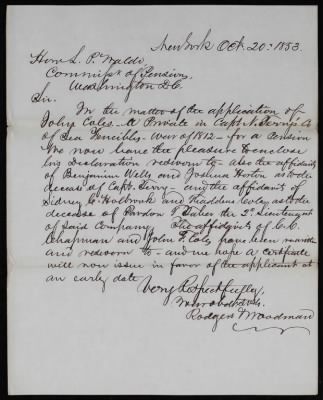 New York Oct. 20th 1853.
Hon. L. P. Waldo
Commiss'r of Pensions,
Washington D.C.
Sir.
In the matter of the application of
John Coles a Private in Capt. N. Terry's Co
of Sea Fencibles. War of 1812 – for a Pension
We now have the pleasure to enclose
his Declaration resworn to – also the affidavits
of Benjamin Wells and Joshua Horton as to the
decease of Capt. Terry – and the affidavits of
Sidney C. Holbrook and Thaddeus Coley as to the
decease of Pardon T. Taber the 2d Lieutenant
of said Company. The affidavits of C. C.
Chapman and John F. Coley have been
and resworn to – and we hope a Certificate
will now issue in favor of the applicant at
an early date
Very Respectfully,
Rodgers & Woodman